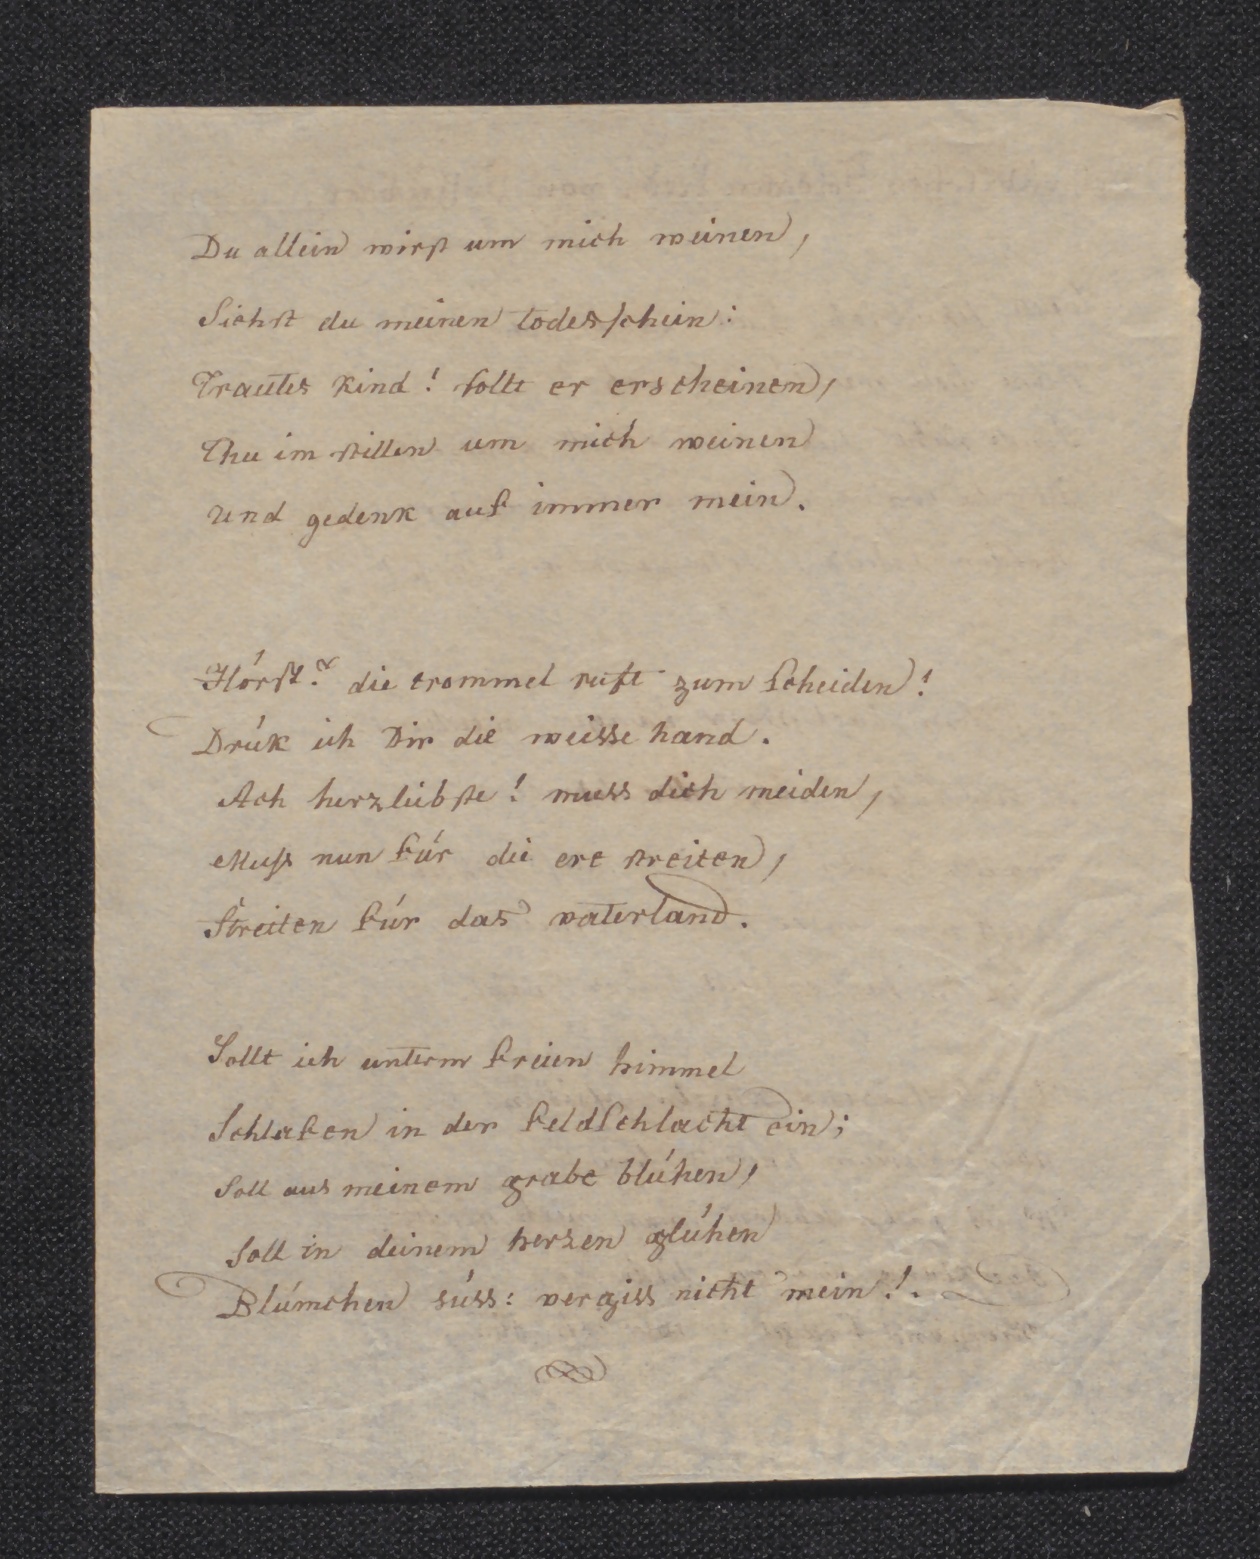 Du allein wirst um mich weinen,
Siehst du meinen todesschein:
Trautes kind! sollt er erscheinen,
Thu im stillen um mich weinen
Und gedenk auf immer mein.
Hörst? die trommel ruft zum scheiden!
Drük ich Dir die weisse hand.
Ach herzliebste! muss dich meiden,
Muss nun für die ere streiten,
Streiten für das vaterland.
Sollt ich unterm freien himmel
Schlafen in der feldschlacht ein;
Soll aus meinem grabe blühen,
Soll in deinem herzen glühen
Blümchen süss: vergiss nicht mein!.